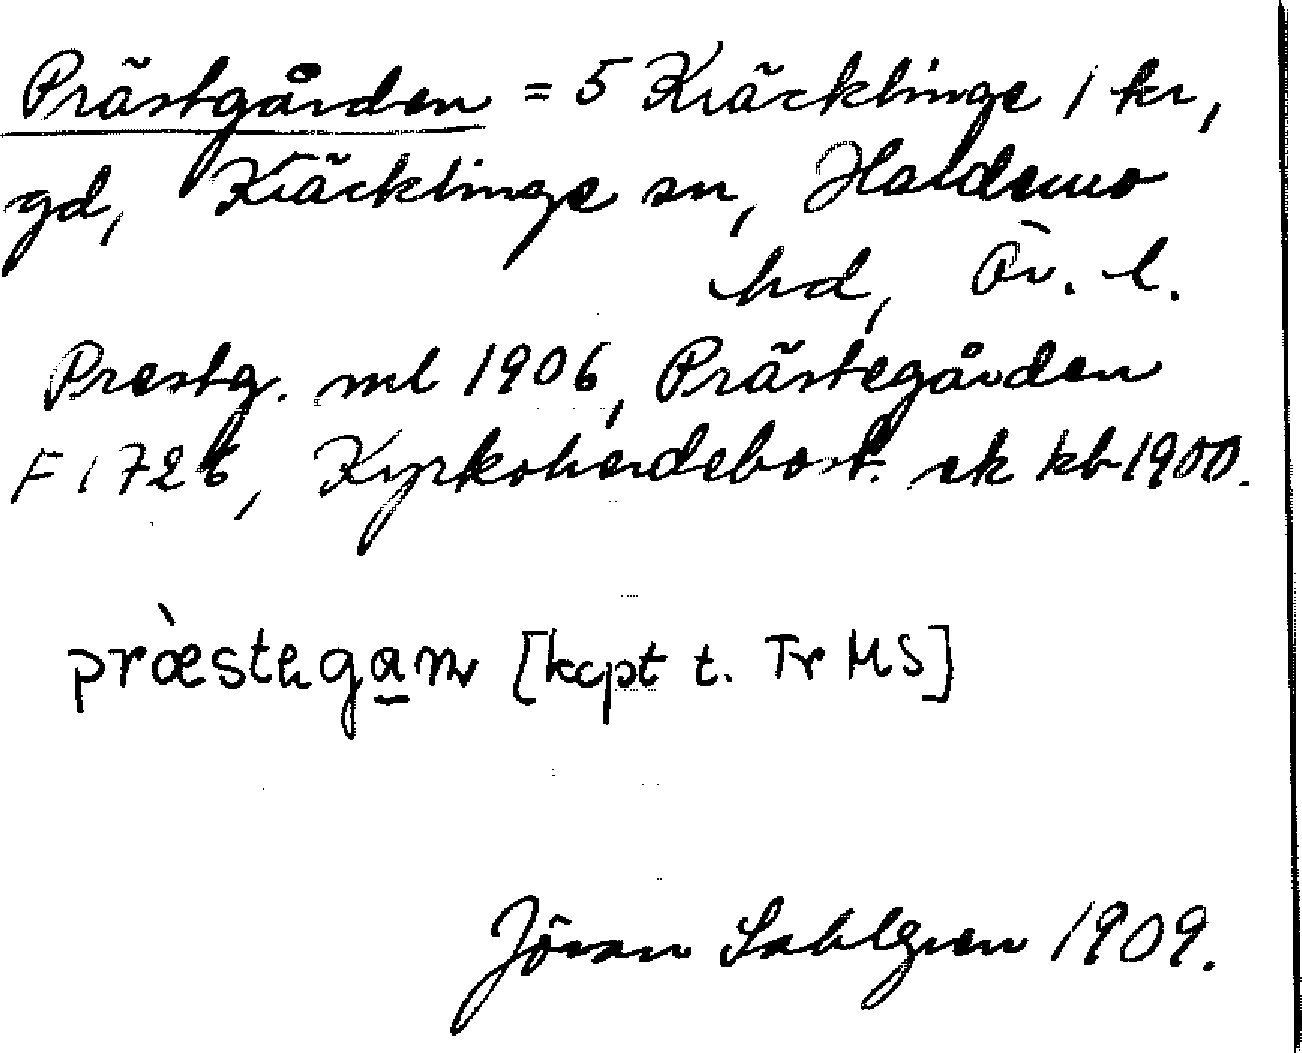 Prästgården = 5 Kräcklinge 1 kr,
gd, Kräcklinge sn, Hardemo
hd, Ör. l.
Prestg. ml 1906, Prästegården
F 1726, Kyrkoherdebost. sk kb 1900.
præ̀stega̲ɳ [kcpt t. Tr MS]
Jöran Sahlgren 1909.